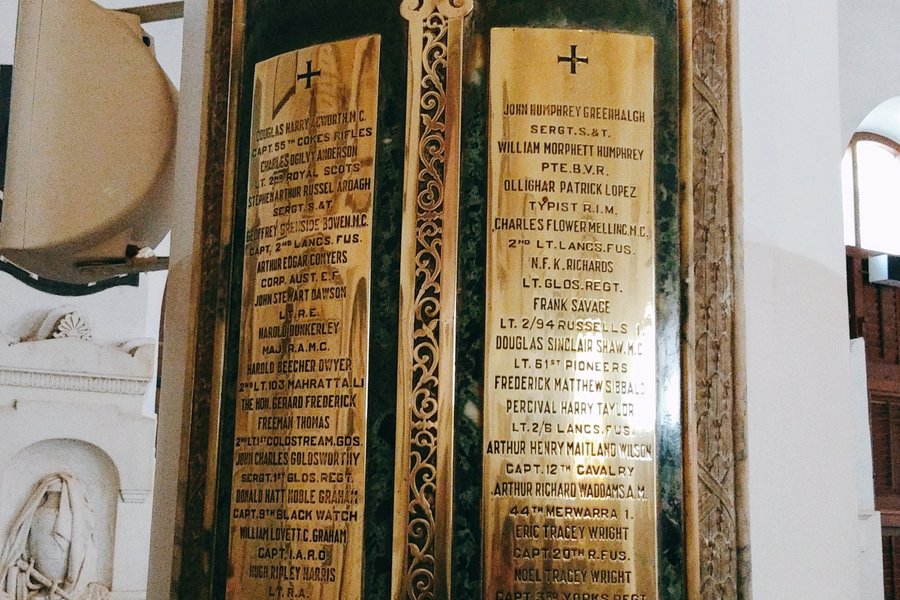 DOUGLAS HARRY ACWORTH.M.C.
CAPT. 55TH COKES RIFLES
CHARLES OGILVY ANDERSON
LT. 2ND ROYAL SCOTS
STEPHEN ARTHUR RUSSEL ARDAGH
SERGT. S.&T.
GEOFFREY GRENSIDE BOWEN.M.C.
CAPT. 2ND LANCS. FUS.
ARTHUR EDGAR CONYERS
CORP. AUST. E.F.
JOHN STEWART DAWSON
LT. R.E.
HAROLD DUNKERLEY
MAJ. R.A.M.C.
HAROLD BEECHER DWYER
2ND LT. 103 MAHRATTA.L.I
THE HON. GERARD FREDERICK
FREEMAN THOMAS
2ND LT. 1ST COLDSTREAM. GDS.
JOHN CHARLES GOLDSWORTHY
SERGT. 1ST GLOS. REGT.
DONALD HATT NOBLE GRAHAM
CAPT. 9TH BLACK WATCH
WILLIAM LOVETT. C. GRAHAM
CAPT. I.A.R.O.
HUGH RIPLEY HARRIS
LT. R.A.
JOHN HUMPHREY GREENHALGH
SERGT. S.&T.
WILLIAM MORPHETT HUMPHREY
PTE. B.V.R.
OLLIGHAR PATRICK LOPEZ
TYPIST R.I.M.
CHARLES FLOWER MELLING.M.C.
2ND LT. LANCS. FUS.
N.F.K. RICHARDS
LT. GLOS. REGT.
FRANK SAVAGE
LT. 2/94 RUSSELLS I.
DOUGLAS SINCLAIR SHAW.M.C
LT. 61ST PIONEERS
FREDERICK MATTHEW SIBBALD
PERCIVAL HARRY TAYLOR
LT. 2/6 LANCS. FUS.
ARTHUR HENRY MAITLAND WILSON
CAPT. 12TH CAVALRY
ARTHUR RICHARD WADDAMS.A.M.
44TH MERWARRA I.
ERIC TRACEY WRIGHT
CAPT. 20TH R.FUS.
NOEL TRACEY WRIGHT
CAPT. 3RD YORKS REGT.